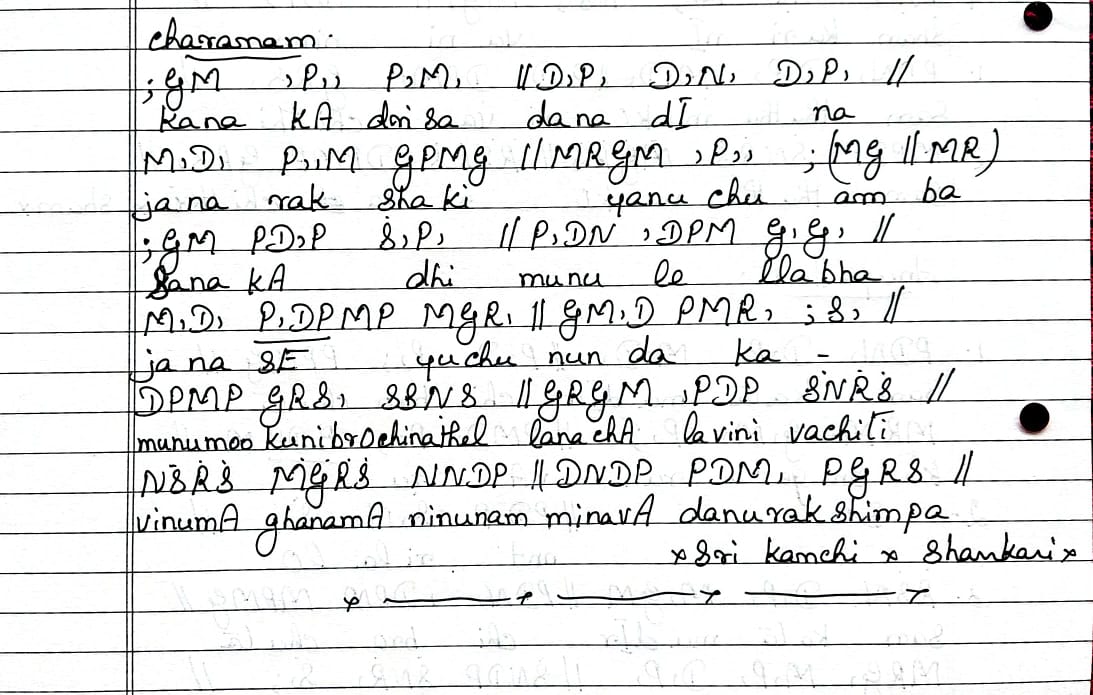 charanam.
; GM , P,, P, M, || D, P, D, N, D, P, ||
kana kA dri sa dana dI na
M, D, P,, M GPMG || MRGM , P,, ; (MG || MR)
jana rak sha ki yanu chu am ba
; GM PD,P Ṡ, P, || P, DN , DPM G, G, ||
Sana kA dhi munu le lla bha
M, D, P, DPMP MGR, || GM, D PMR, ; S, ||
ja na SE yuchu nun da ka -
DPMP GRS, SSNS || GRGM , PDP ṠNṘṠ ||
munumoo kunibrOchinathel lanachA lavini vachiti
NṠṘṠ ṀĠṘṠ NNDP || DNDP PDM, PGRS ||
vinumA ghanamA ninunam minavA danurakshimpa
× Sri kamchi × Shankari ×